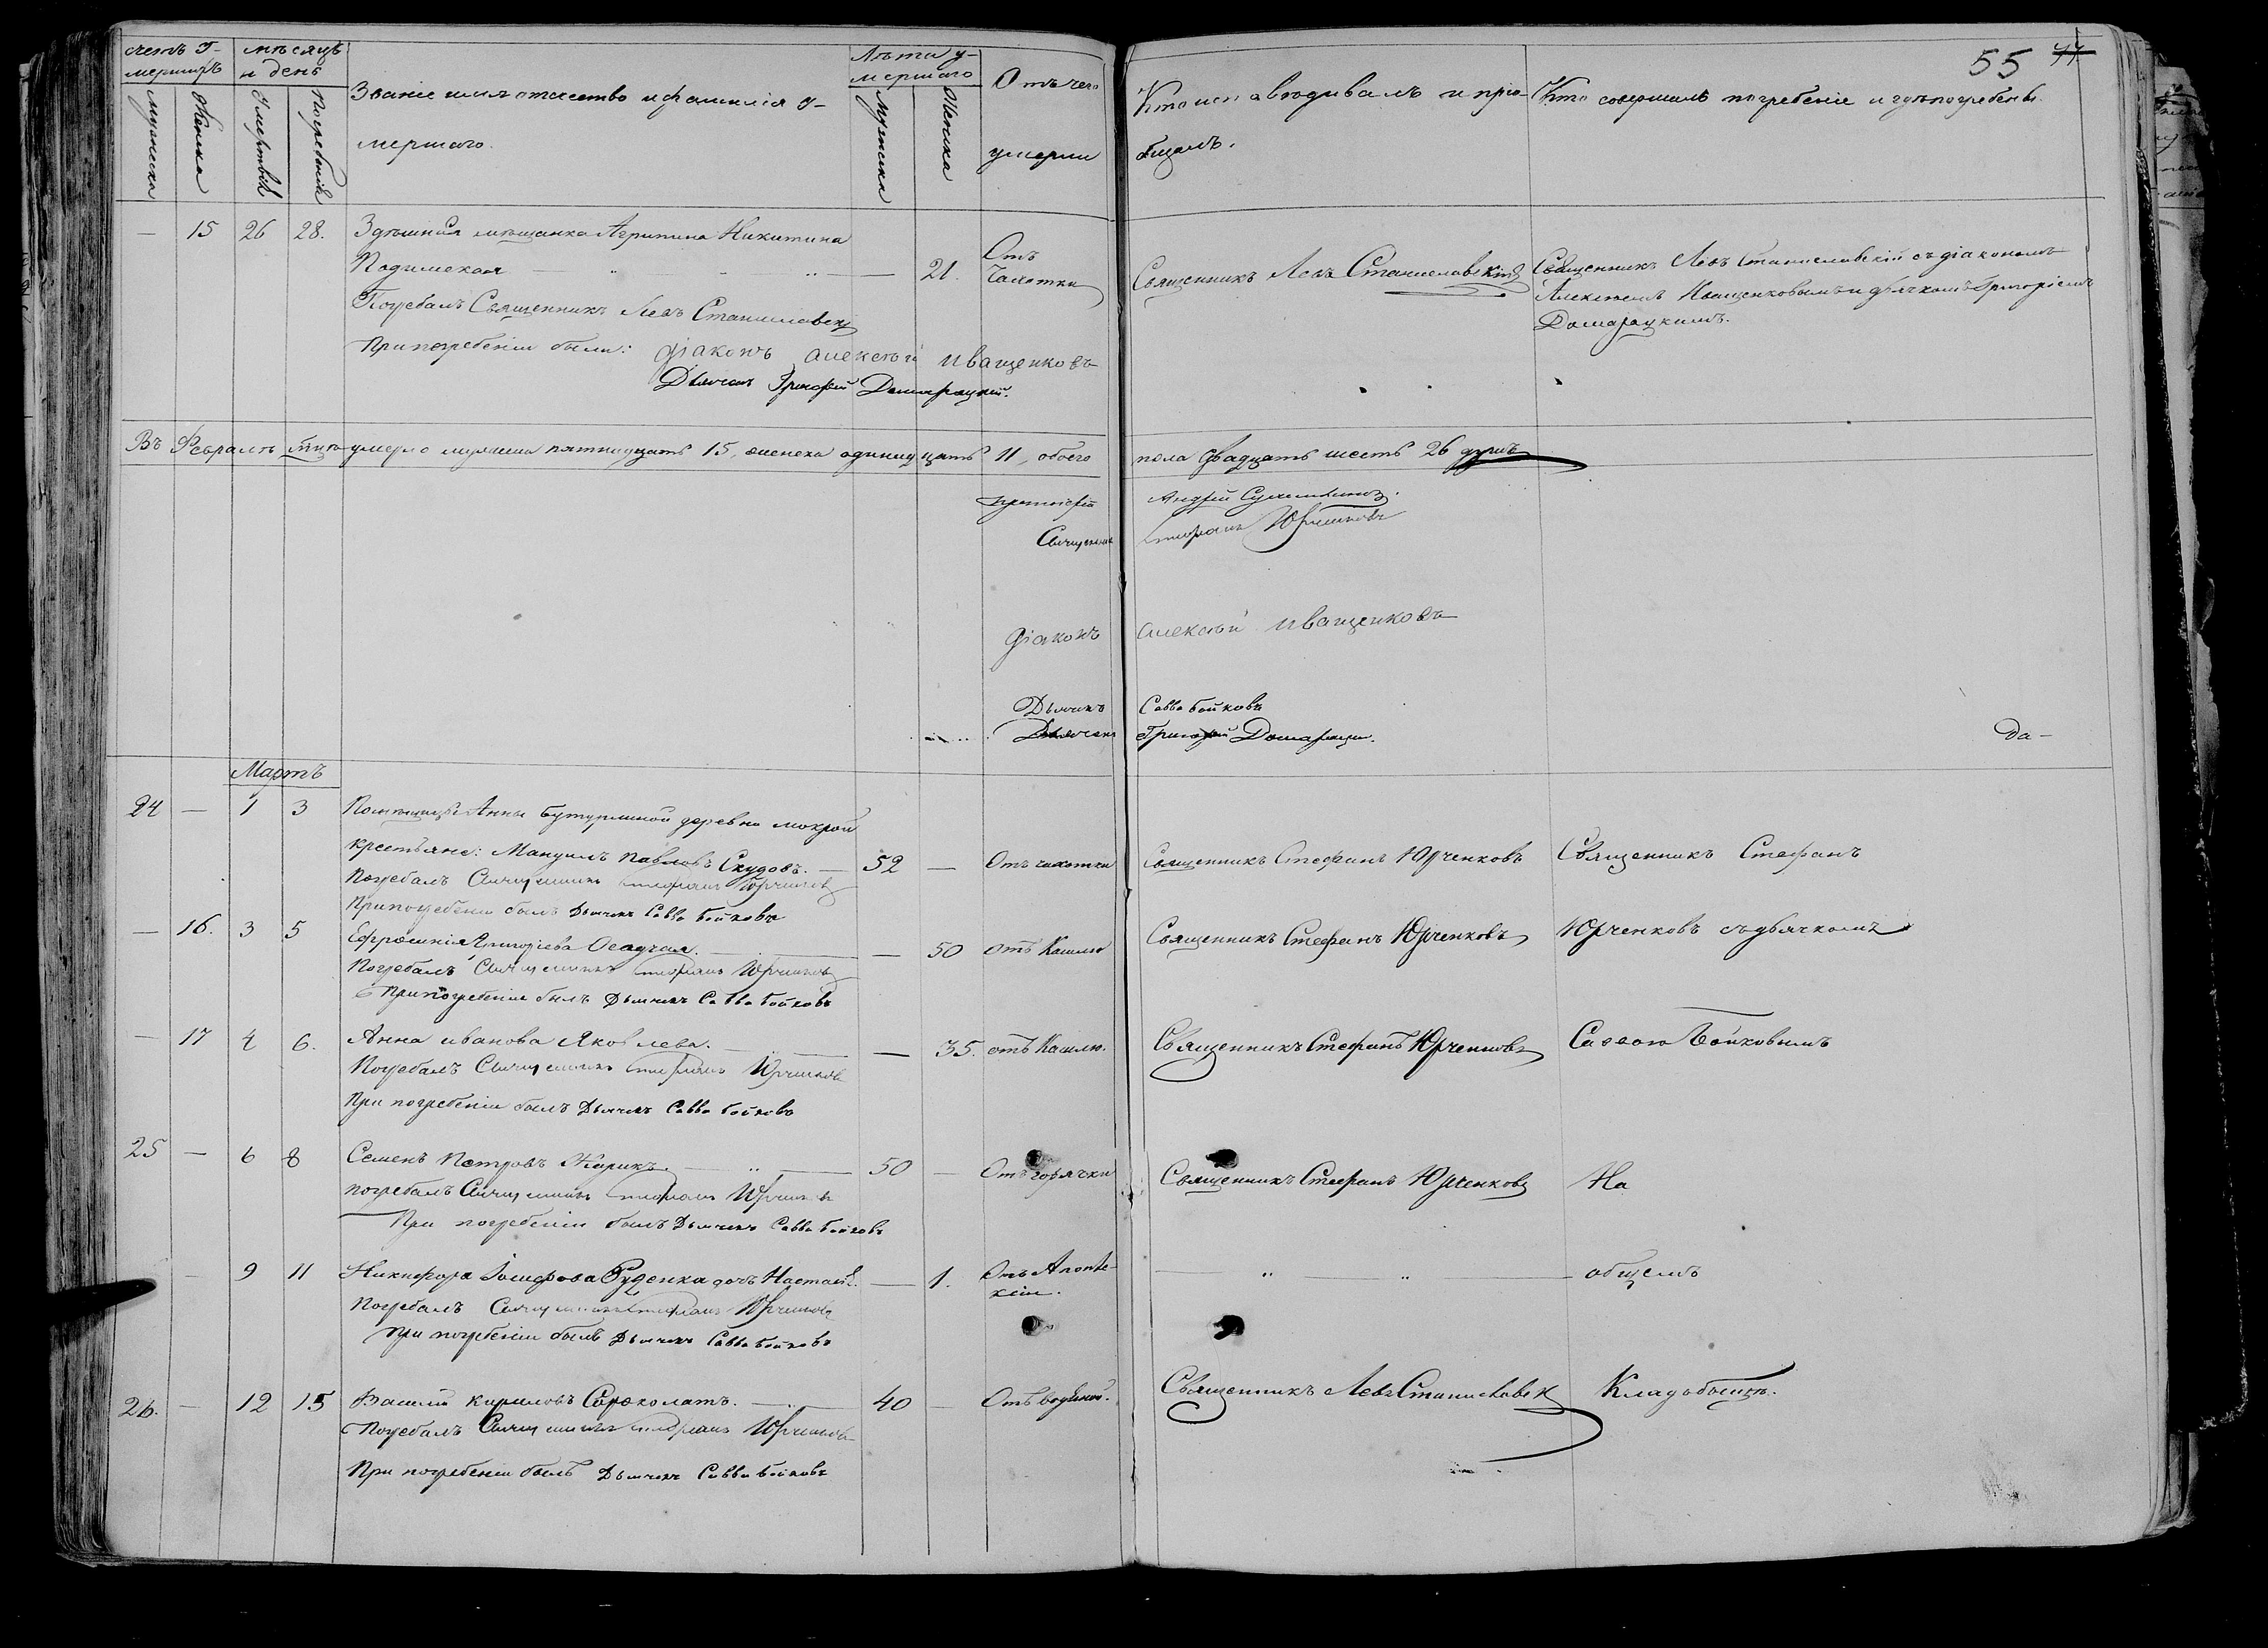 55 44
Счетъ У-
мершихъ
Мужеска
Женска
мѣсяцъ
и день
Смертый
Погребенія
Званіе имя отчество и фамилія У-
мершаго.
Лѣта у-
мершаго
Мужеска
Женска
Отъ чего
умерли
Кто исповѣдывалъ и прі-
общалъ.
Кто совершалъ погребеніе и гдѣ погребены.
— 15 26 28. Здѣшняя мѣщанка Агрипина Никитина
Подимская — 21. Отъ
Чахотки
Погребалъ Священникъ Левъ Станиславскій
При погребеніи были: Діаконъ Алексѣй Иващенковъ
Дьячекъ Григорій Домарацкій.
Священникъ Левъ Станиславскій
Священникъ Левъ Станиславскій съ діакономъ
Алексѣемъ Иващенковымъ и дьячкомъ Григоріемъ
Домарацкимъ.
Въ Февралѣ мцѣ умерло мужеска пятнадцать 15, женска одинадцать 11, обоего пола двадцать шесть 26 душъ
протоіерей Андрей
Священникъ Стефанъ Юрченковъ
Діаконъ Алексѣй Иващенковъ
Дьячекъ Савва Бойковъ
Дьячекъ Григорій Домарацкій.
да-
Мартъ
24 — 1 3 Помѣщицы Анны Бутурлиной деревни мокрой
крестьяне: Мануилъ Павловъ Скудовъ. — 52 — Отъ чахотки
Погребалъ Священникъ Стефанъ Юрченковъ
При погребеніи былъ Дьячекъ Савва Бойковъ
Священникъ Стефанъ Юрченковъ
Священникъ Стефанъ
— 16. 3 5 Ефросинія Григорієва Осадчая. — 50 отъ Кашлю
Погребалъ Священникъ Стефанъ Юрченковъ
При погребеніи былъ Дьячекъ Савва Бойковъ
Священникъ Стефанъ Юрченковъ
Юрченковъ съ дьячкомъ
— 17 4 6. Анна иванова Яковлева. — 35. отъ Кашлю.
Погребалъ Священникъ Стефанъ Юрченковъ
При погребеніи былъ Дьячекъ Савва Бойковъ
Священникъ Стефанъ Юрченковъ
Саввою Бойковымъ
25 — 6 8 Семенъ Петровъ Журикъ. — 50 — Отъ горячки
погребалъ Священникъ Стефанъ Юрченковъ
При погребеніи былъ Дьячекъ Савва Бойковъ
Священникъ Стефанъ Юрченковъ
На
— 9 11 Никифора Іосифова Руденка дочь Настасія. — 1. Отъ
Погребалъ Священникъ Стефанъ Юрченковъ
При погребеніи былъ Дьячекъ Савва Бойковъ
общемъ
26. — 12 15 Василій Кириловъ — 40 — Отъ водяной.
Погребалъ Священникъ Стефанъ Юрченковъ
При погребеніи былъ Дьячекъ Савва Бойковъ
Священникъ Левъ Станиславск
Кладобищѣ.